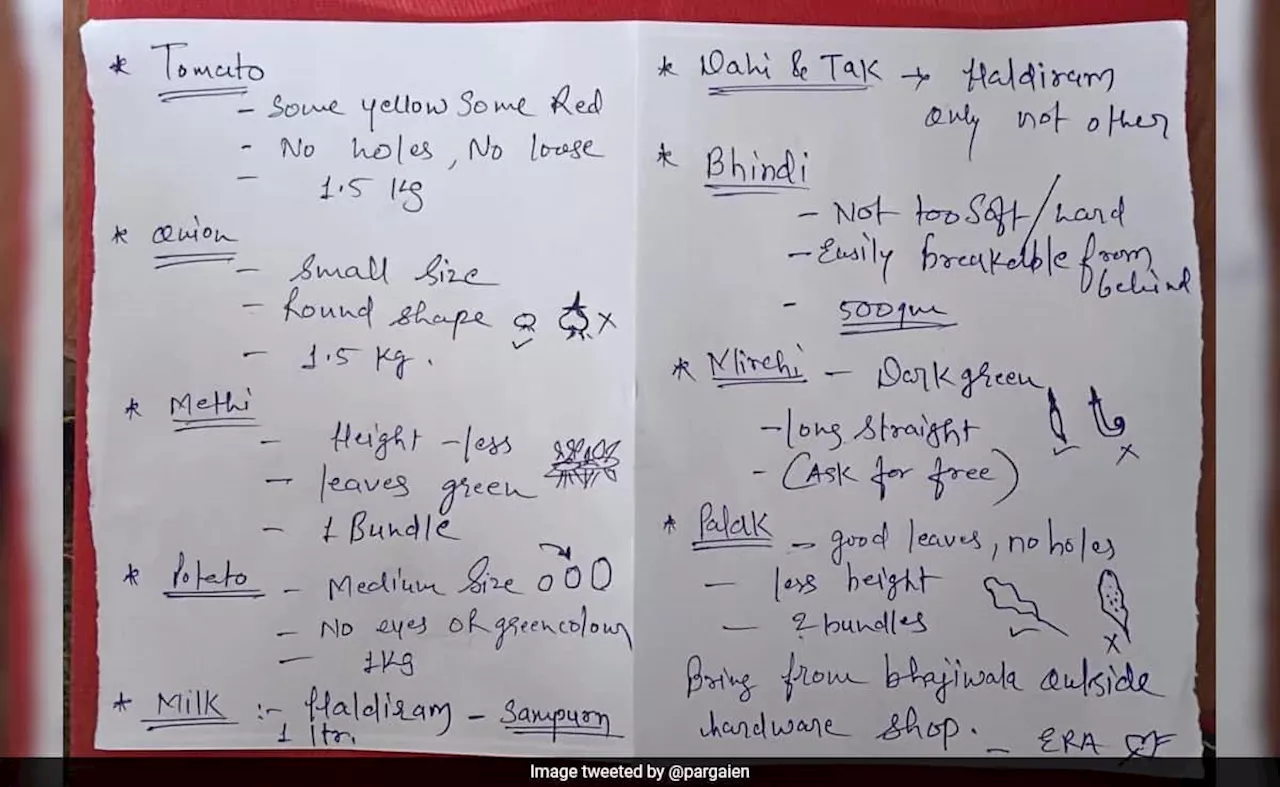 * Tomato
- Some yellow Some Red
- No holes, No loose
- 1.5 kg
* Onion
- Small Size
- Round shape
- 1.5 kg.
* Methi
- Height - less
- leaves green
- 1 Bundle
* Poteto - Medium Size
- No eyes or green colour
- 1kg
* Milk :- Haldiram - Sampurn
1 ltr.
* Dahi & Tak → Haldiram
only not other
* Bhindi
- Not too Soft/hard
- Easily breakable from
behind
- 500gm
* Mirchi - Dark green
- long straight
- (Ask for free)
* Palak - good leaves, no holes
- less height
- 2 bundles
Bring from bhajiwala outside
hardware shop. - ERA
Image tweeted by @pargaien